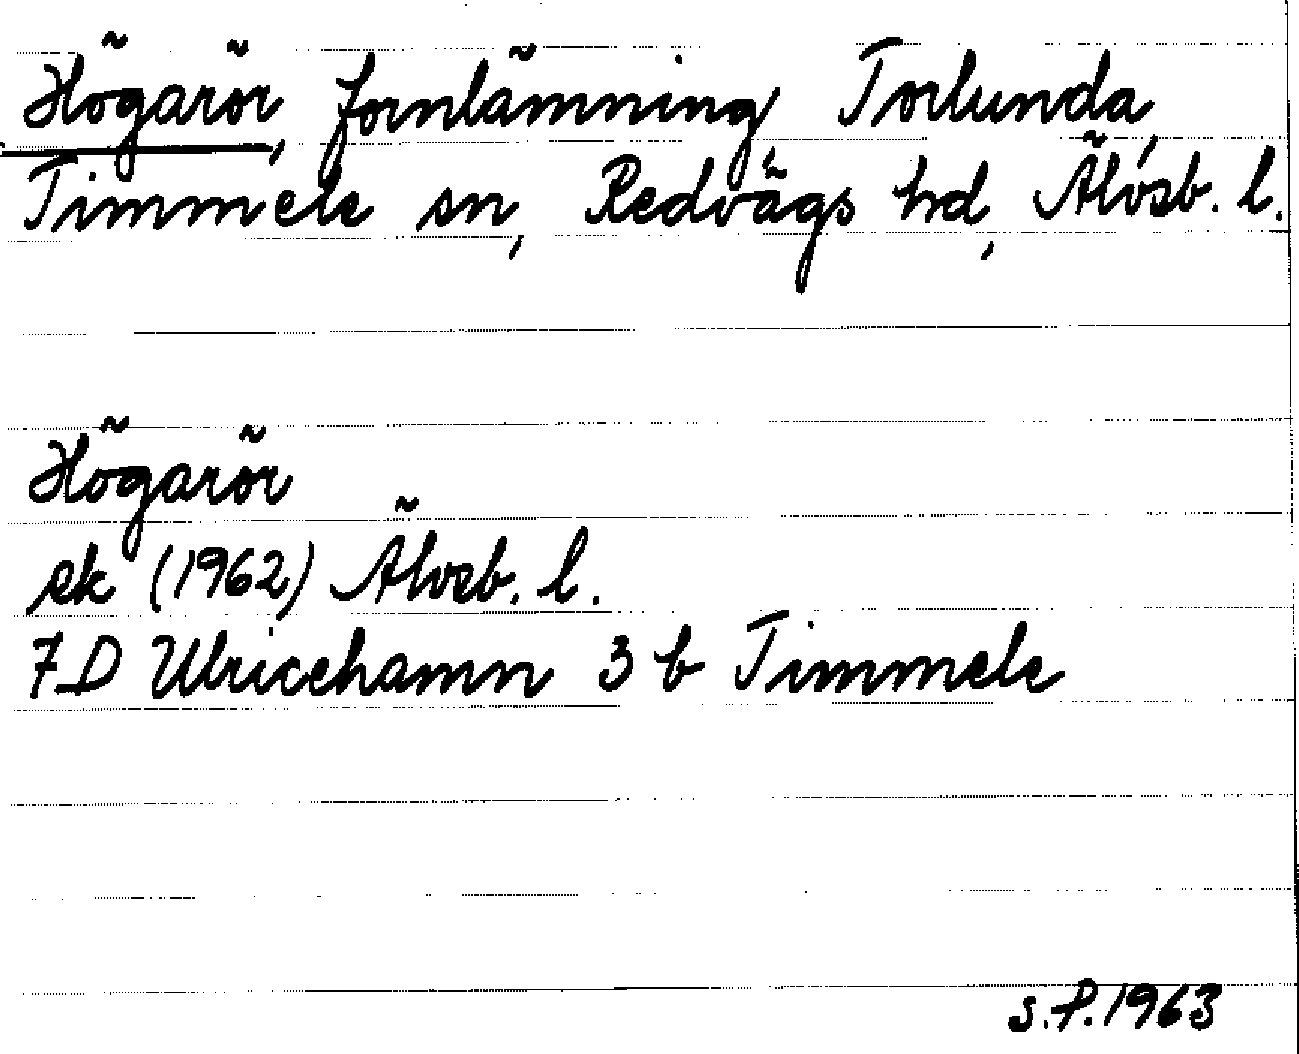 Högarör, fornlämning, Torlunda,
Timmele sn, Redvägs hd, Älvsb. l.
Högarör
ek (1962) Älvsb. l.
7D Ulricehamn 3 b Timmele
S.P. 1963